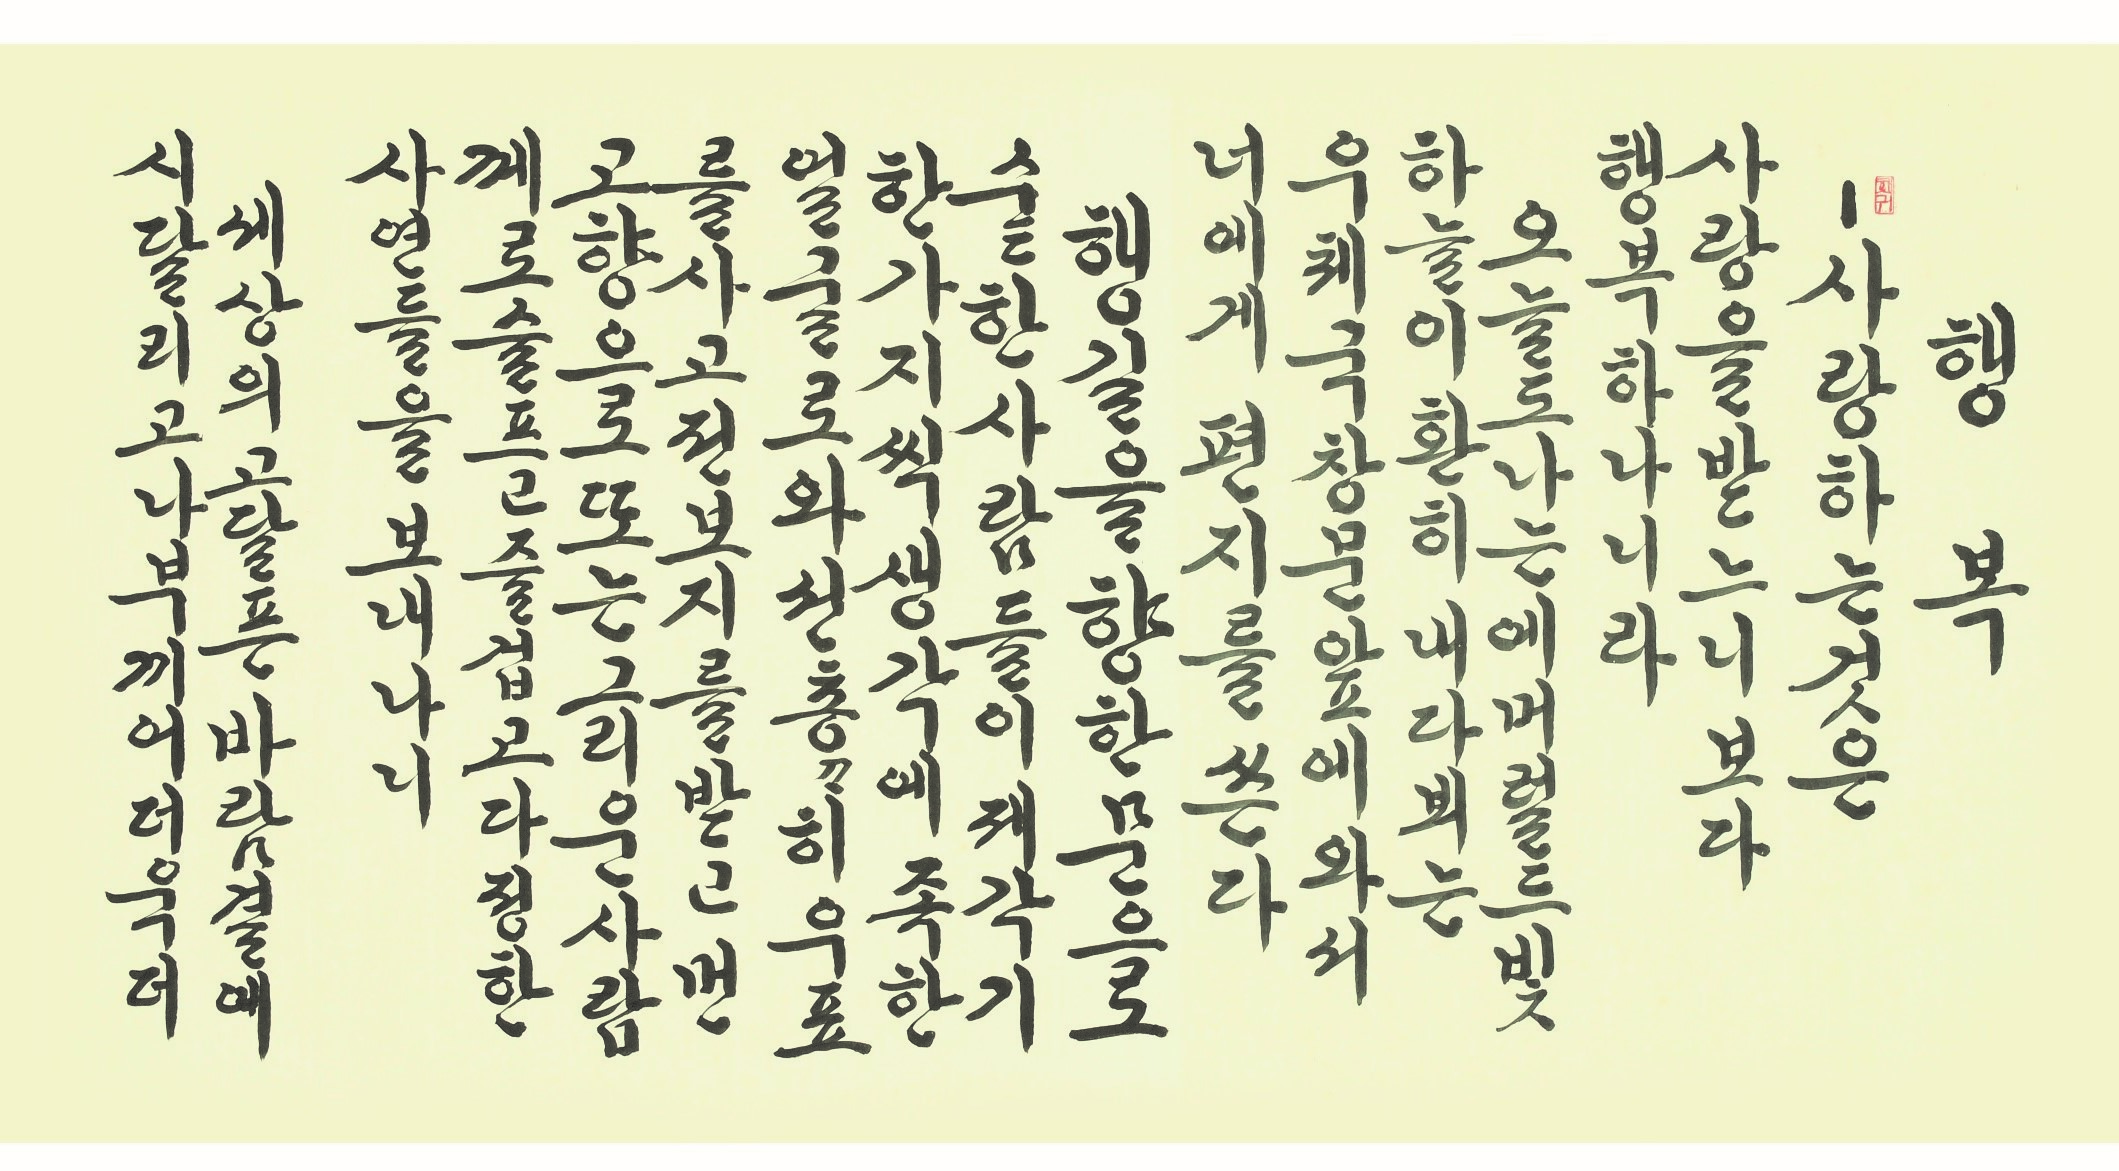 행 복
-사랑하는것은
사랑을받느니보다
행복하나니라
오늘도나는에머럴드빛
하늘이환히 내다뵈는
우체국창문앞에와서
너에게 편지를쓴다
행길을 향한 문으로
숱한사람들이 제각기
한가지씩생각에 족한
얼굴로와선총〃히 우표
를사고전보지를받고 먼
고향으로또는그리운사람
께로슬프고즐겁고다정한
사연들을 보내나니
세상의고달픈 바람결에
시달리고나부끼어더욱더